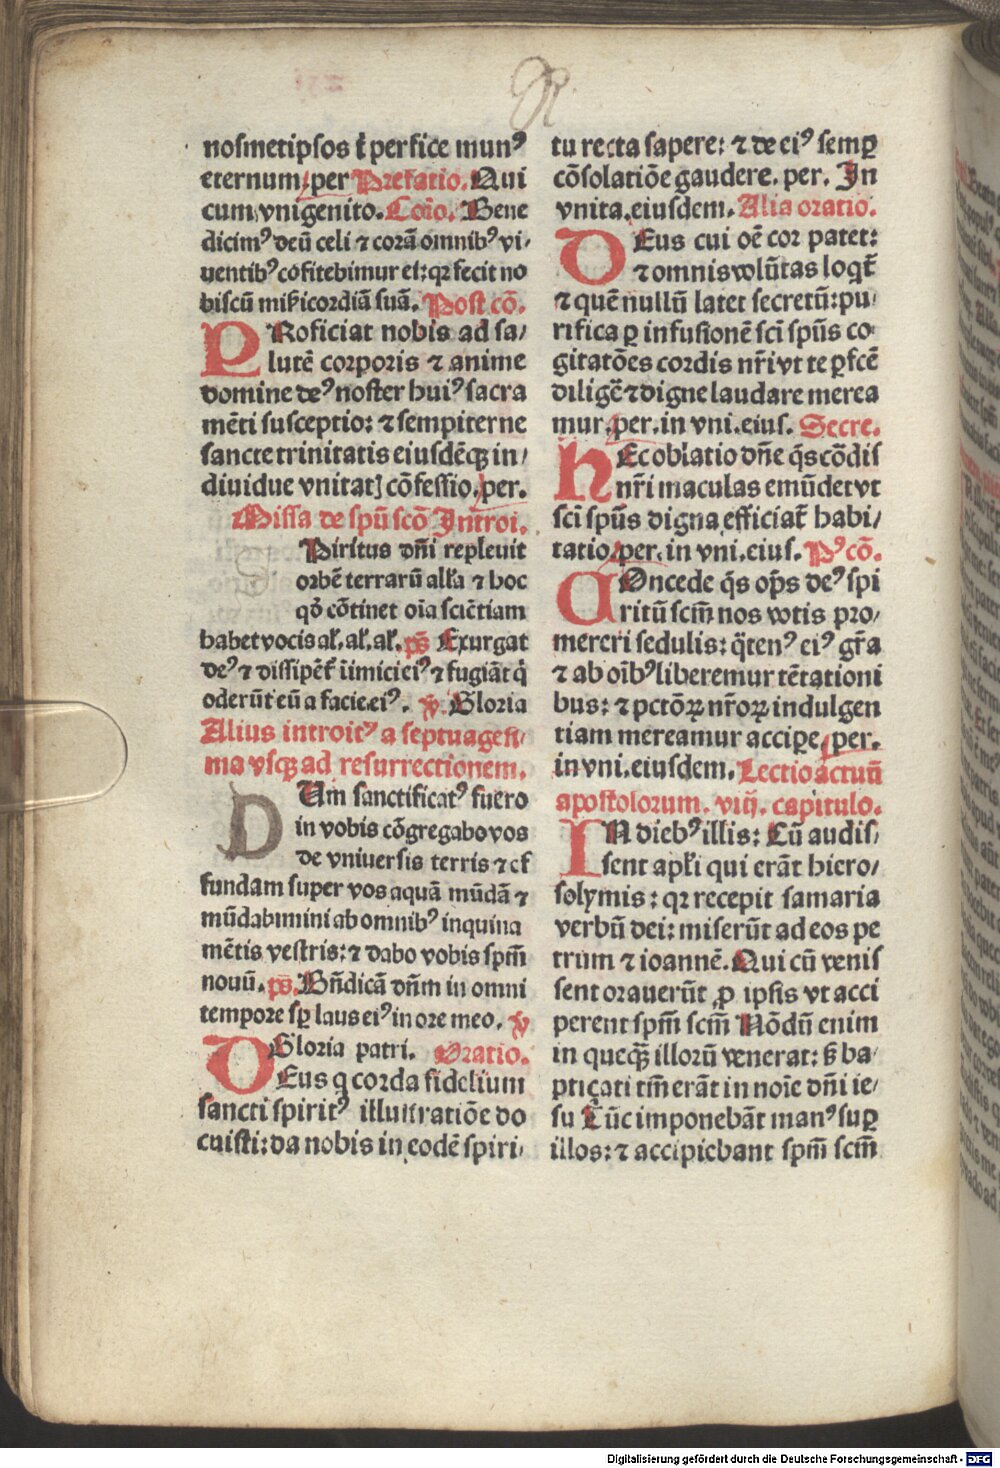 noſmetipſos ⁊ perfice munꝰ
eternum. per Prefatio. Qui
cum vnigenito. Cōio. Bene
dicimꝰ deū celi ⁊ corā omnibꝰ vi⸗
uentibꝰ cōfitebimur ei: qꝛ fecit no
biſcū miſericordiā ſuā. Poſt cō.
PRoficiat nobis ad ſa⸗
lutē corporis ⁊ anime
domine deꝰ noſter huiꝰ ſacra
mēti ſuſceptio: ⁊ ſempiterne
ſancte trinitatis eiuſdēqꝫ in⸗
diuidue vnitatꝭ cōfeſſio. per.
Miſſa de ſpū ſcō Introi.
SPiritus dn̄i repleuit
orbē terrarū alľa ⁊ hoc
qđ cōtinet oīa ſciētiam
habet vocis aľ. aľ. aľ. pſ̄ Exurgat
deꝰ ⁊ diſſipēt̄ inimici eiꝰ ⁊ fugiāt q̇
oderūt eū a facie eiꝰ. v̄. Gloria
Alius introitꝰ a ſeptuageſi⸗
ma vſqꝫ ad reſurrectionem.
DUm ſanctificatꝰ fuero
in vobis cōgregabo vos
de vniuerſis terris ⁊ ef
fundam ſuper vos aquā mūdā ⁊
mūdabimini ab omnibꝰ inquina
mētis veſtris: ⁊ dabo vobis ſpm̄
nouū. pſ̄. Bn̄dicā dn̄m in omni
tempore ſꝑ laus eiꝰ in ore meo. v̄
Gloria patri. Oratio.
DEus q corda fidelium
ſancti ſpiritꝰ illuſtratiōe do
cuiſti: da nobis in eodē ſpiri⸗
tu recta ſapere: ⁊ de eiꝰ ſemꝑ
cōſolatiōe gaudere. per. In
vnita. eiuſdem. Alia oratio.
DEus cui oē cor patet:
⁊ omnis volūtas loqt̄
⁊ quē nullū latet ſecretū: pu⸗
rifica ꝑ infuſionē ſci ſpūs co
gitatōes cordis nr̄i vt te ꝑfcē
diligē ⁊ digne laudare merea
mur. per. in vni. eiuſ. Secre.
HEc oblatio dn̄e q̄s cōdiſ
nr̄i maculas emūdet vt
ſci ſpūs digna efficiat̄ habi⸗
tatio. per. in vni. eiuſ. Pꝰcō.
COncede q̄s op̄s deꝰ ſpi
ritū ſcm̄ nos votis pro⸗
mereri ſedulis: q̄tenꝰ eiꝰ gr̄a
⁊ ab oībꝰ liberemur tētationi
bus: ⁊ pctōꝝ nr̄oꝝ indulgen
tiam mereamur accipe. per.
in vni. eiuſdem. Lectio actuū
apoſtolorum. viij. capitulo.
IN diebꝰ illis: Cū audiſ⸗
ſent apľi qui erāt hiero⸗
ſolymis: qꝛ recepit ſamaria
verbū dei: miſerūt ad eos pe
trum ⁊ ioannē. Qui cū veniſ
ſent orauerūt ꝓ ipſis vt acci
perent ſpm̄ ſcm̄ Nōdū enim
in quēqꝫ illorū venerat: ſꝫ ba⸗
ptiçati tm̄ erāt in noīe dn̄i ie⸗
ſu Tūc imponebāt manꝰ ſuꝑ
illos: ⁊ accipiebant ſpm̄ ſcm̄
Digitalisierung gefördert durch die Deutsche Forschungsgemeinschaft - DFG